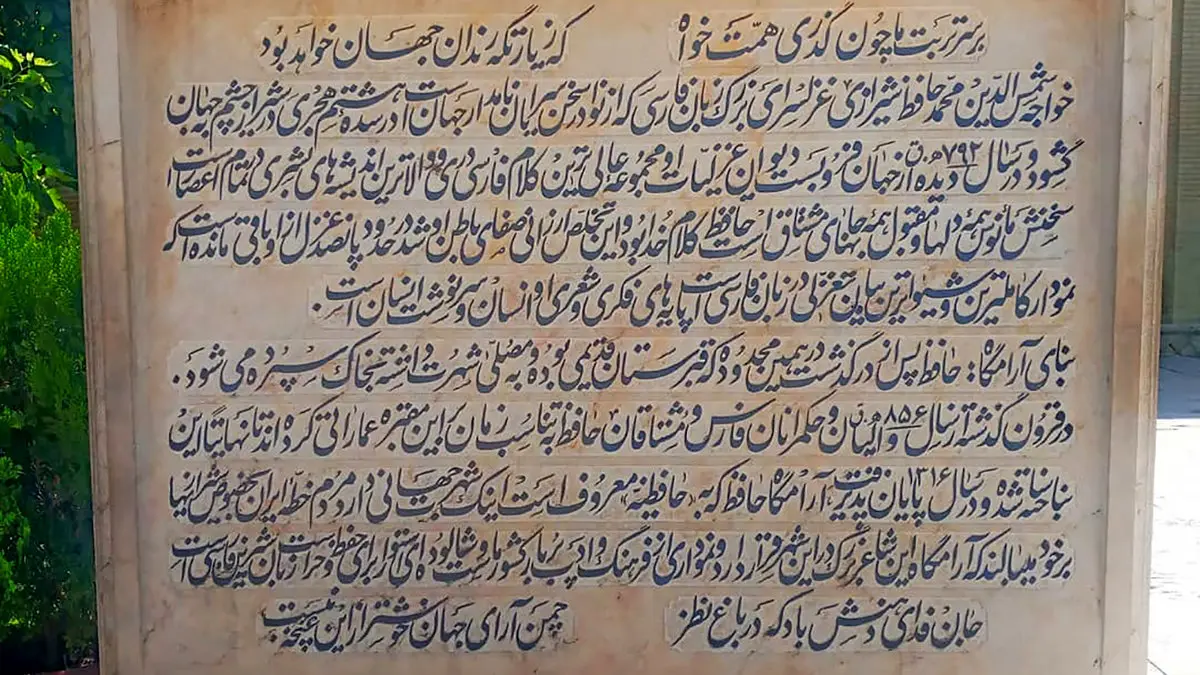 بر سر تربت ما چون گذری همّت خواه که زیارتگه رندان جهان خواهد بود
خواجه شمس الدین محمد حافظ شیرازی غزلسرای بزرگ زبان فارسی که از نوادر سخن سرایان نامدار جهانست در سده هشتم هجری در شیراز چشم به جهان
گشود و در سال ۷۹۲ ه.ق دیده از جهان فروبست دیوان غزلیات او مجموعه عالی ترین کلام فارسی دری و والاترین اندیشه های بشری در تمام اعصار است
سخنش مأنوس همه دلها و مقبول همه جانهای مشتاق است حافظ کلام خدا بود و این تخلص ارزانی صفای باطن او شد در حدود پانصد غزل از او باقی مانده است که
نمودار کاملترین و شیواترین بیان تغزلی در زبان فارسی است پایه های فکری و شعری او انسان و سرنوشت انسان است.
بنای آرامگاه: حافظ پس از درگذشت در همین محدوده که قبرستان قدیمی بوده و به مصلی شهرت داشته بخاک سپرده می شود.
در قرون گذشته از سال ۸۵۶ ه.ق والیان و حکمرانان فارس و مشتاقان حافظ به تناسب زمان بر این مقبره عماراتی کرده اند تا نهایتا این
بنا ساخته شده و در سال ۱۳۱۶ پایان پذیرفت آرامگاه حافظ که به حافظیه معروف است اینک شهرت جهانی دارد مردم خطه ایران بخصوص شیرازیها
برخود میبالند که آرامگاه این شاعر بزرگ در این شهر قرار دارد و نموداری از فرهنگ و ادب پربار کشور ماست و شالوده ای استوار برای حفظ و حراست زبان شیرین فارسی است
جان فدای دهنش باد که در باغ نظر چمن آرای جهان خوشتر از این غنچه نبست